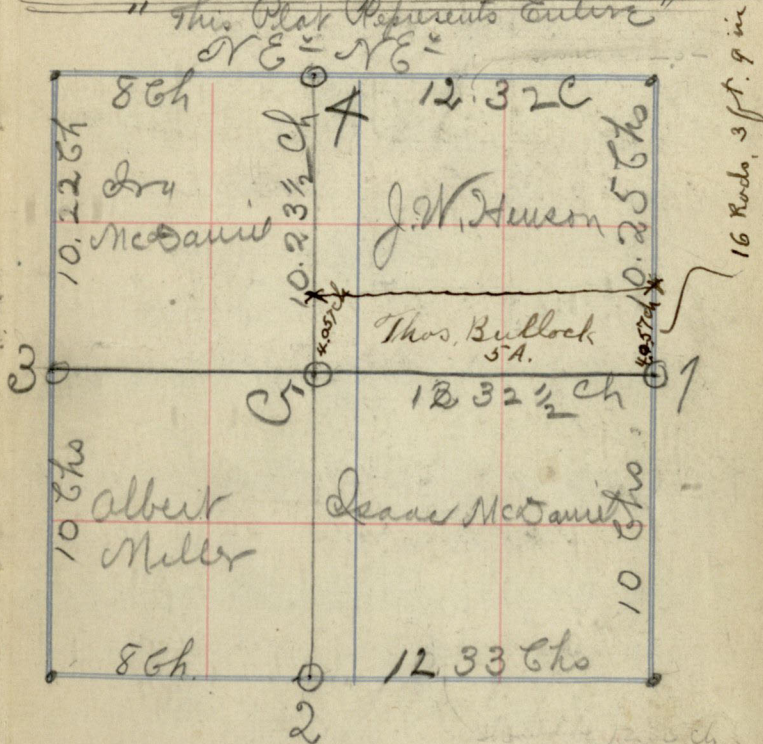 "This Plat Represents Entire"
NE¼ NE¼
8 Ch
4
12.32 C
10.22 Ch
Ira
McDaniel
10.23½ Ch
J. W. Henson
10.25 Chs
16 Rods, 3 ft. 9 in
4.057 Ch
Thos. Bullock
5 A.
4.057 Ch
3
5
12 32½ Ch
1
10 Chs
Albert
Miller
Isaac McDaniel
10 Chs.
8 Ch.
12 33 Chs
2